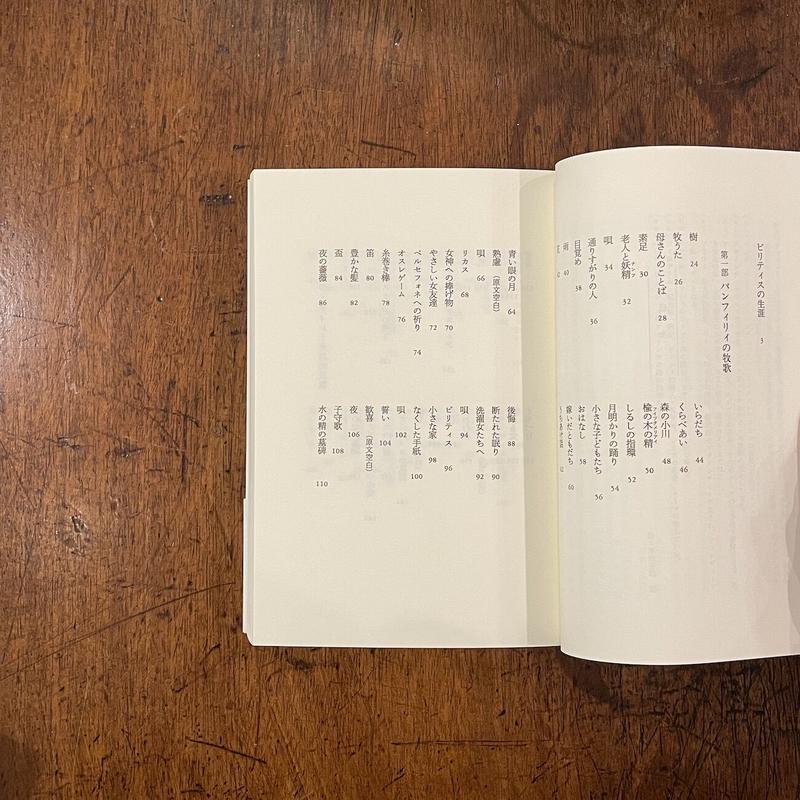 ビリティスの生涯 3
第一部 パンフィリイの牧歌
樹 24
牧うた 26
母さんのことば 28
素足 30
老人と妖精 32
ニンフ
唄 34
通りすがりの人 36
目覚め 38
雨 40
いらだち 44
くらべあい 46
森の小川 48
楡の木の精 50
しるしの指環 52
月明かりの踊り 54
小さな子どもたち 56
おはなし 58
嫁いだともだち 60
青い眼の月 64
熟慮（原文空白）
唄 66
リカス 68
女神への捧げ物 70
やさしい女友達 72
ペルセフォネへの祈り 74
オスレゲーム 76
糸巻き棒 78
笛 80
豊かな髪 82
盃 84
夜の薔薇 86
後悔 88
断たれた眠り 90
洗濯女たちへ 92
唄 94
ビリティス 96
小さな家 98
なくした手紙 100
唄 102
誓い 104
歓喜（原文空白）
夜 106
子守歌 108
水の精の墓碑 110